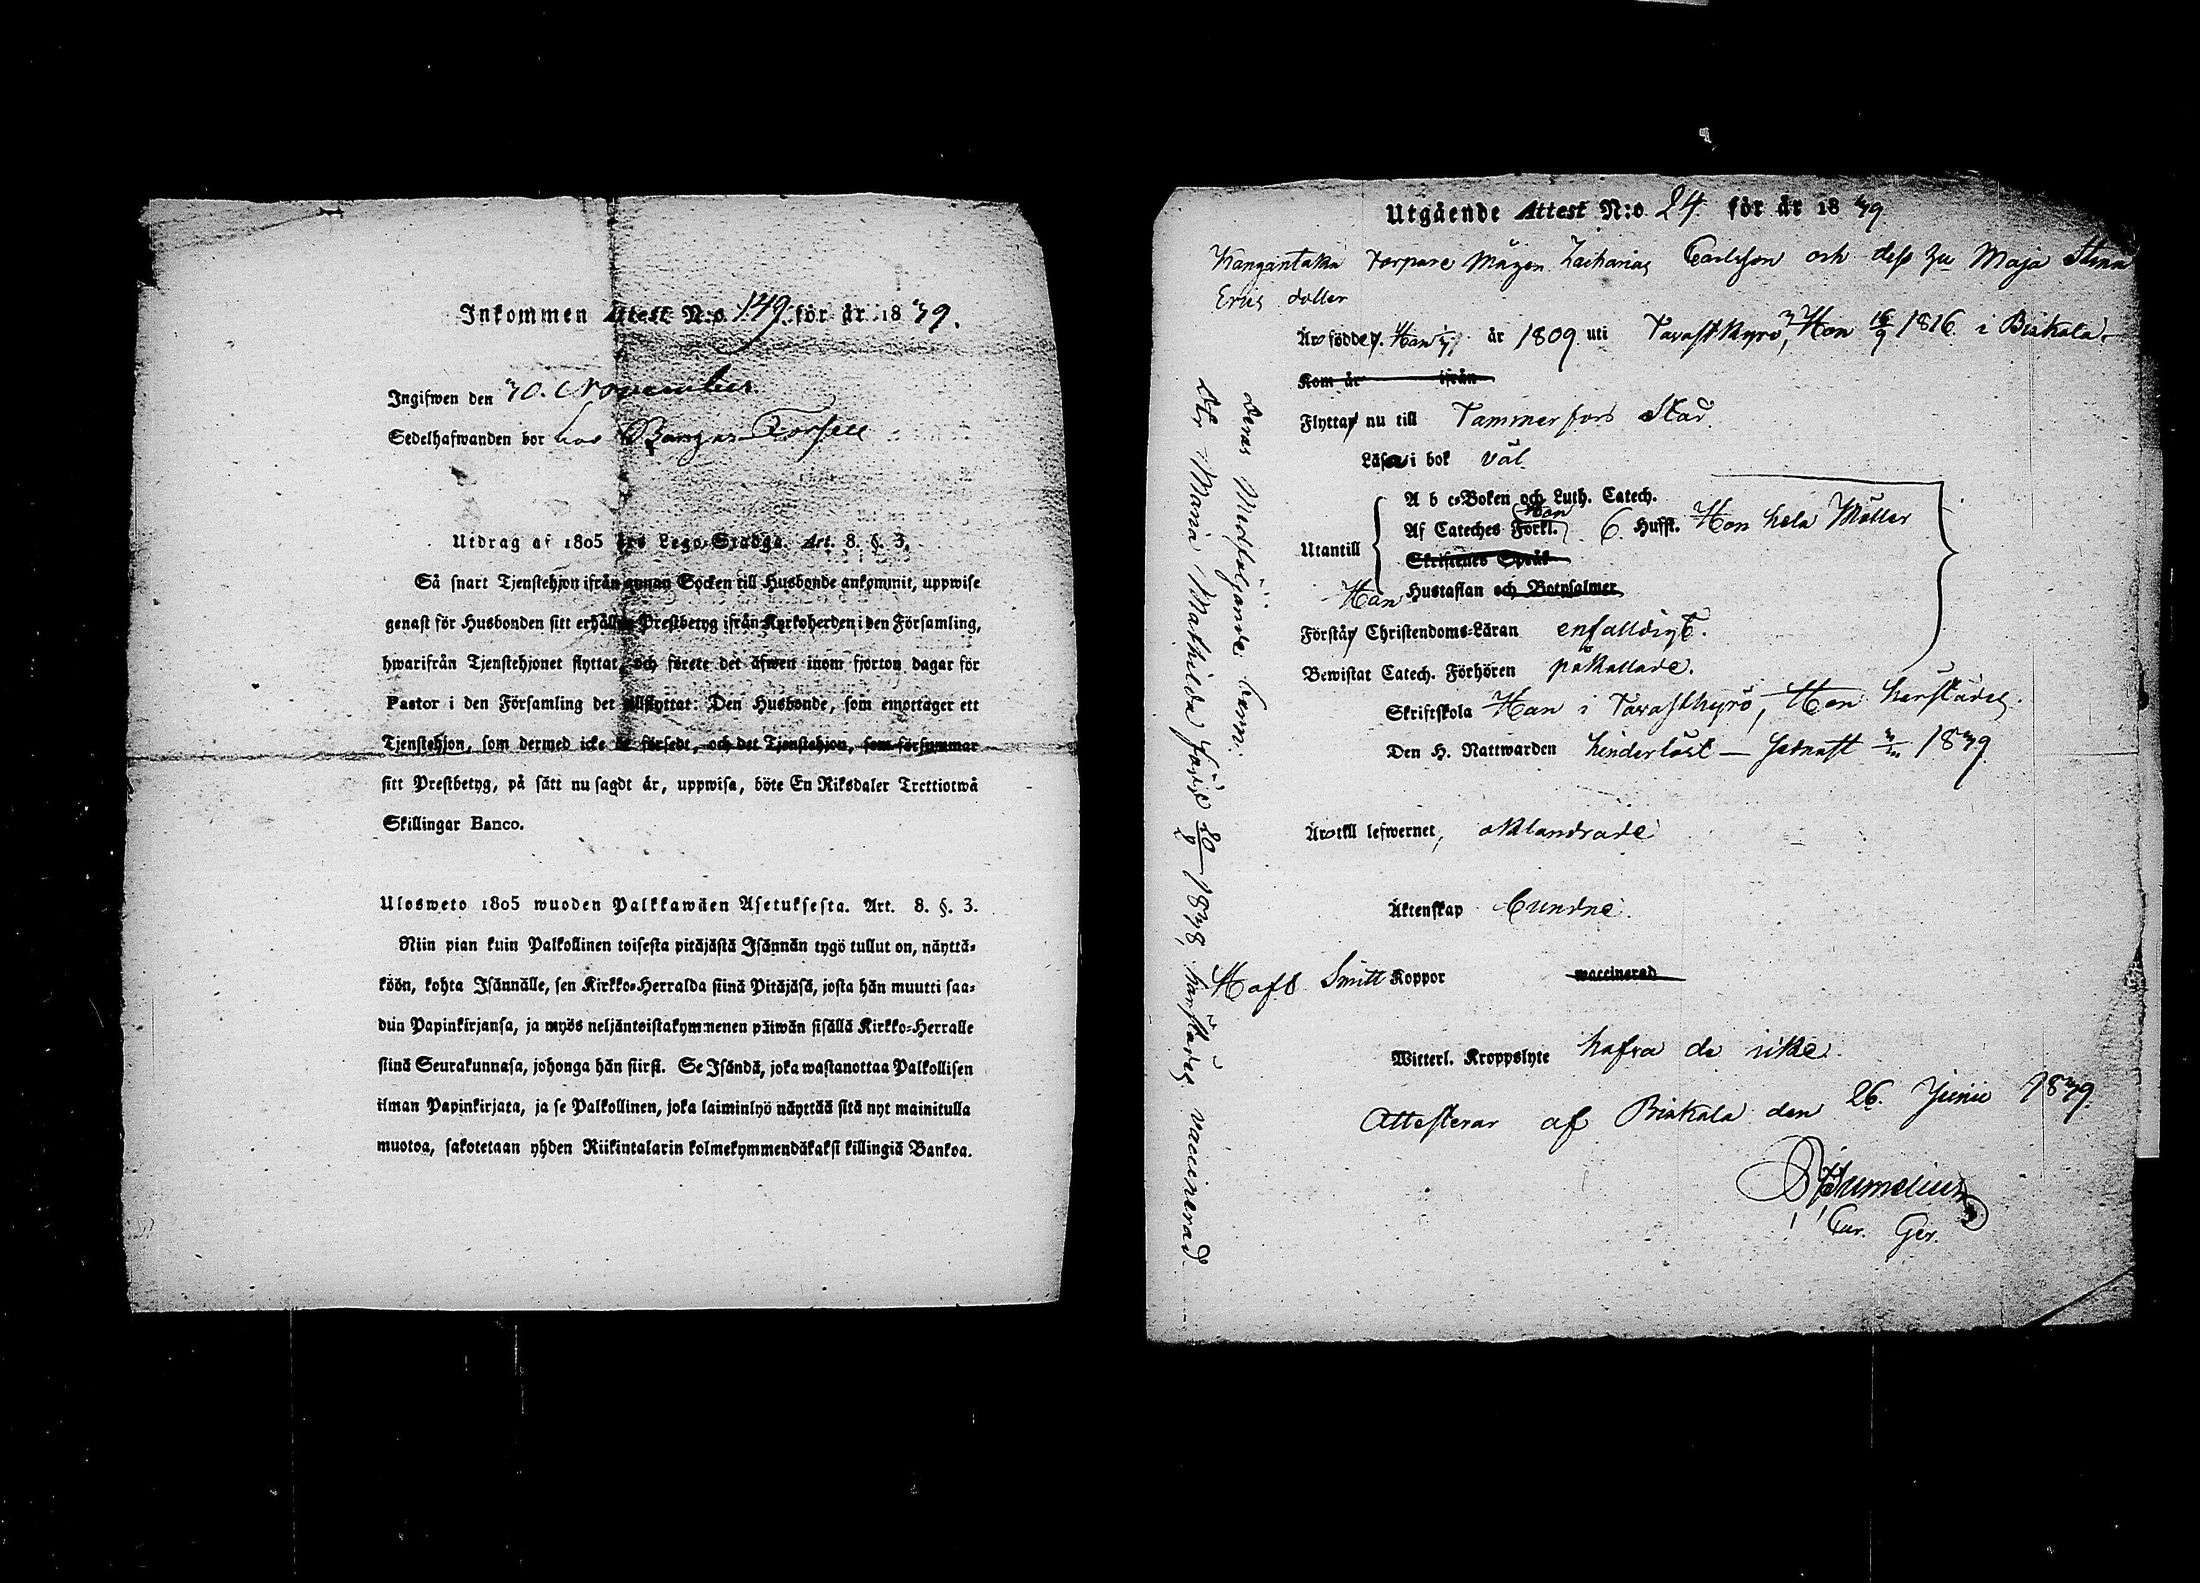 Inkommen Attest N:o 149. för år 1839.
Ingifwen den 30. November
Sedelhafwanden bor hos
Utdrag af 1805 års Lego-Stadga. Art. 8. §. 3.
Så snart Tjenstehjon ifrån annan Socken till Husbonde ankommit, uppwise
genast för Husbonden sitt erhållna Prestbetyg ifrån Kyrkoherden i den Församling,
hwarifrån Tjenstehjonet flyttat, och förete det äfwen inom fjorton dagar för
Pastor i den Församling det tillflyttat: Den Husbonde, som emottager ett
Tjenstehjon, som dermed icke är försedt, och det Tjenstehjon, som försummar
sitt Prestbetyg, på sätt nu sagdt är, uppwisa, böte En Riksdaler Trettiotwå
Skillingar Banco.
Ulosweto 1805 wuoden Palkkawäen Asetuksesta. Art. 8. §. 3.
Niin pian kuin Palkollinen toisesta pitäjästä Isännän tygö tullut on, näyttä-
köön, kohta Isännälle, sen Kirkko-Herralda siinä Pitäjäsä, josta hän muutti saa-
dun Papinkirjansa, ja myös neljäntoistakymmenen päiwän sisällä Kirkko-Herralle
siinä Seurakunnasa, johonga hän siirsi. Se Isändä, joka wastanottaa Palkollisen
ilman Papinkirjata, ja se Palkollinen, joka laiminlyö näyttää sitä nyt mainitulla
muotoa, sakotetaan yhden Riikintalarin kolmekymmendäkaksi killingiä Bankoa.
Utgående Attest N:o 24. för år 1839
Kangantaka Torpare Mågen Zacharias Carlsson och dess hu Maja Stina
Erics dotter
Äro födde, Han år 1809 uti Tavastkyro, Hon 16/9 1816 i Birkala.
Kom år ifrån
Flytta nu till Tammerfors Stad.
Läsa i bok väl
A b c-Boken och Luth. Catech.
Han
Af Cateches Förkl. 6. Hufst. Hon hela Möller
Utantill
Skriftenes Språk
Han Hustaflan och Botpsalmer
Förstå Christendoms-Läran enfalldigt.
Bewistat Catech. Förhören påkallade.
Skriftskola Han i Tavastkyrö, Hon härstädes.
Den H. Nattwarden hinderlöst — sednast 1839
Äro till lefwernet, oklandrade
Äktenskap bundne.
Haft Smitt Koppor waccinerad
Witterl. Kroppslyte hafva de icke.
Attesterar af Birkala den 26. Junii 1839.
Deras Medföljande barn:
Dtr Maria Mathilda född 20/2 1838, härstädes vaccinerad